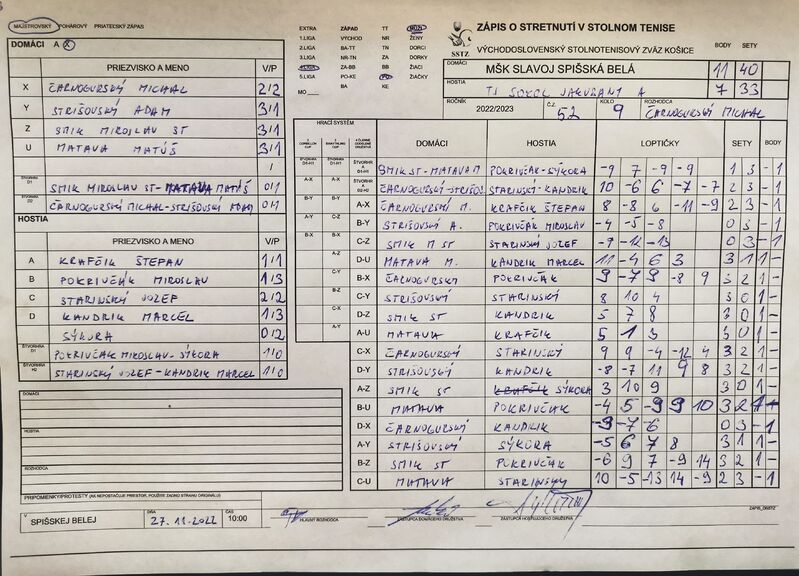 MAJSTROVSKÝ POHÁROVÝ PRIATEĽSKÝ ZÁPAS
DOMÁCI A X
PRIEZVISKO A MENO V/P
X ČARNOGURSKÝ MICHAL 2/2
Y STRIŠOVSKÝ ADAM 3/1
Z SMIK MIROSLAV ST 3/1
U MATAVA MATÚŠ 3/1
/
ŠTVORHRA D1 SMIK MIROSLAV ST-MATAVA MATÚŠ 0/1
ŠTVORHRA D2 ČARNOGURSKÝ MICHAL-STRIŠOVSKÝ ADAM 0/1
HOSTIA
PRIEZVISKO A MENO V/P
A KRAFČÍK ŠTEPAN 1/1
B POKRIVČÁK MIROSLAV 1/3
C STARINSKÝ JOZEF 2/2
D KANDRIK MARCEL 1/3
SÝKORA 0/2
ŠTVORHRA POKRIVČÁK MIROSLAV-SÝKORA 1/0
ŠTVORHRA H2 STARINSKÝ JOZEF-KANDRIK MARCEL 1/0
DOMÁCI
HOSTIA
ROZHODCA
PRIPOMIENKY/PROTESTY (AK NEPOSTAČUJE PRIESTOR, POUŽITE ZADNÚ STRANU ORIGINÁLU)
V SPIŠSKEJ BELEJ DŇA 27.11.2022 ČAS 10:00
HLAVNÝ ROZHODCA ZÁSTUPCA DOMÁCEHO DRUŽSTVA ZÁSTUPCA HOSŤUJÚCEHO DRUŽSTVA
EXTRA ZÁPAD TT MUŽI
1.LIGA VÝCHOD NR ŽENY
2.LIGA BA-TT TN DORCI
3.LIGA NR-TN ZA DORKY
4.LIGA ZA-BB BB ŽIACI
5.LIGA PO-KE PO ŽIAČKY
MO BA KE
SSTZ
ZÁPIS O STRETNUTÍ V STOLNOM TENISE
VÝCHODOSLOVENSKÝ STOLNOTENISOVÝ ZVÄZ KOŠICE BODY SETY
DOMÁCI MŠK SLAVOJ SPIŠSKÁ BELÁ 11 40
HOSTIA TJ SOKOL JAKUBANY A 7 33
ROČNÍK 2022/2023 Č.Z. 52 KOLO 9 ROZHODCA ČARNOGURSKÝ MICHAL
HRACÍ SYSTÉM
DOMÁCI HOSTIA LOPTIČKY SETY BODY
SMIK ST-MATAVA M POKRIVČÁK-SÝKORA -9 7 -9 -9 1 3 -1
ČARNOGURSKÝ-STRIŠOV. STARINSKÝ-KANDRIK 10 -6 6 -7 -7 2 3 -1
A-X ČARNOGURSKÝ M. KRAFČÍK ŠTEPAN 8 -8 6 -11 -9 2 3 -1
B-Y STRIŠOVSKÝ A. POKRIVČÁK MIROSLAV -4 -5 -8 0 3 -1
C-Z SMIK M ST STARINSKÝ JOZEF -9 -12 -13 0 3 -1
D-U MATAVA M. KANDRIK MARCEL 11 -4 6 3 3 1 1 -
B-X ČARNOGURSKÝ POKRIVČÁK 9 -7 9 -8 9 3 2 1 -
C-Y STRIŠOVSKÝ STARINSKÝ 8 10 4 3 0 1 -
D-Z SMIK ST KANDRIK 5 7 8 3 0 1 -
A-U MATAVA KRAFČÍK 5 1 3 3 0 1 -
C-X ČARNOGURSKÝ STARINSKÝ 9 9 -4 -12 4 3 2 1 -
D-Y STRIŠOVSKÝ KANDRIK -8 -7 11 9 8 3 2 1 -
A-Z SMIK ST KRAFČÍK SÝKORA 3 10 9 3 0 1 -
B-U MATAVA POKRIVČÁK -4 5 -9 9 10 3 2 1 -
D-X ČARNOGURSKÝ KANDRIK -3 -7 -6 0 3 -1
A-Y STRIŠOVSKÝ SÝKORA -5 6 7 8 3 1 1 -
B-Z SMIK ST POKRIVČÁK -6 9 7 -9 14 3 2 1 -
C-U MATAVA STARINSKÝ 10 -5 -13 14 -9 2 3 -1
ZÁPIS_D6/STZ